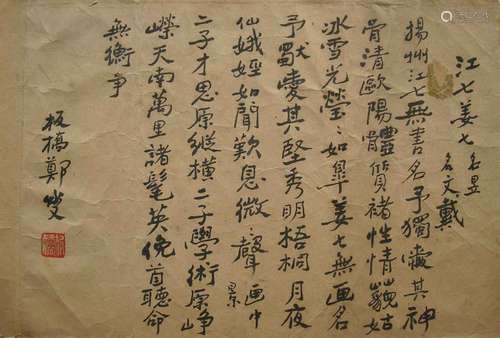 江七姜七 名昱 名文戴
揚州江七無書名予獨愛其神
骨清歐陽體質褚性情藐姑
冰雪光瑩〻如皋姜七無画名
予獸愛其堅秀明梧桐月夜
仙娥婭如聞歎息微〻聲画中景
二子才思原縱橫二子學術原崢
嶸天南萬里諸髦英俛首聽命
無衡争
板橋鄭燮